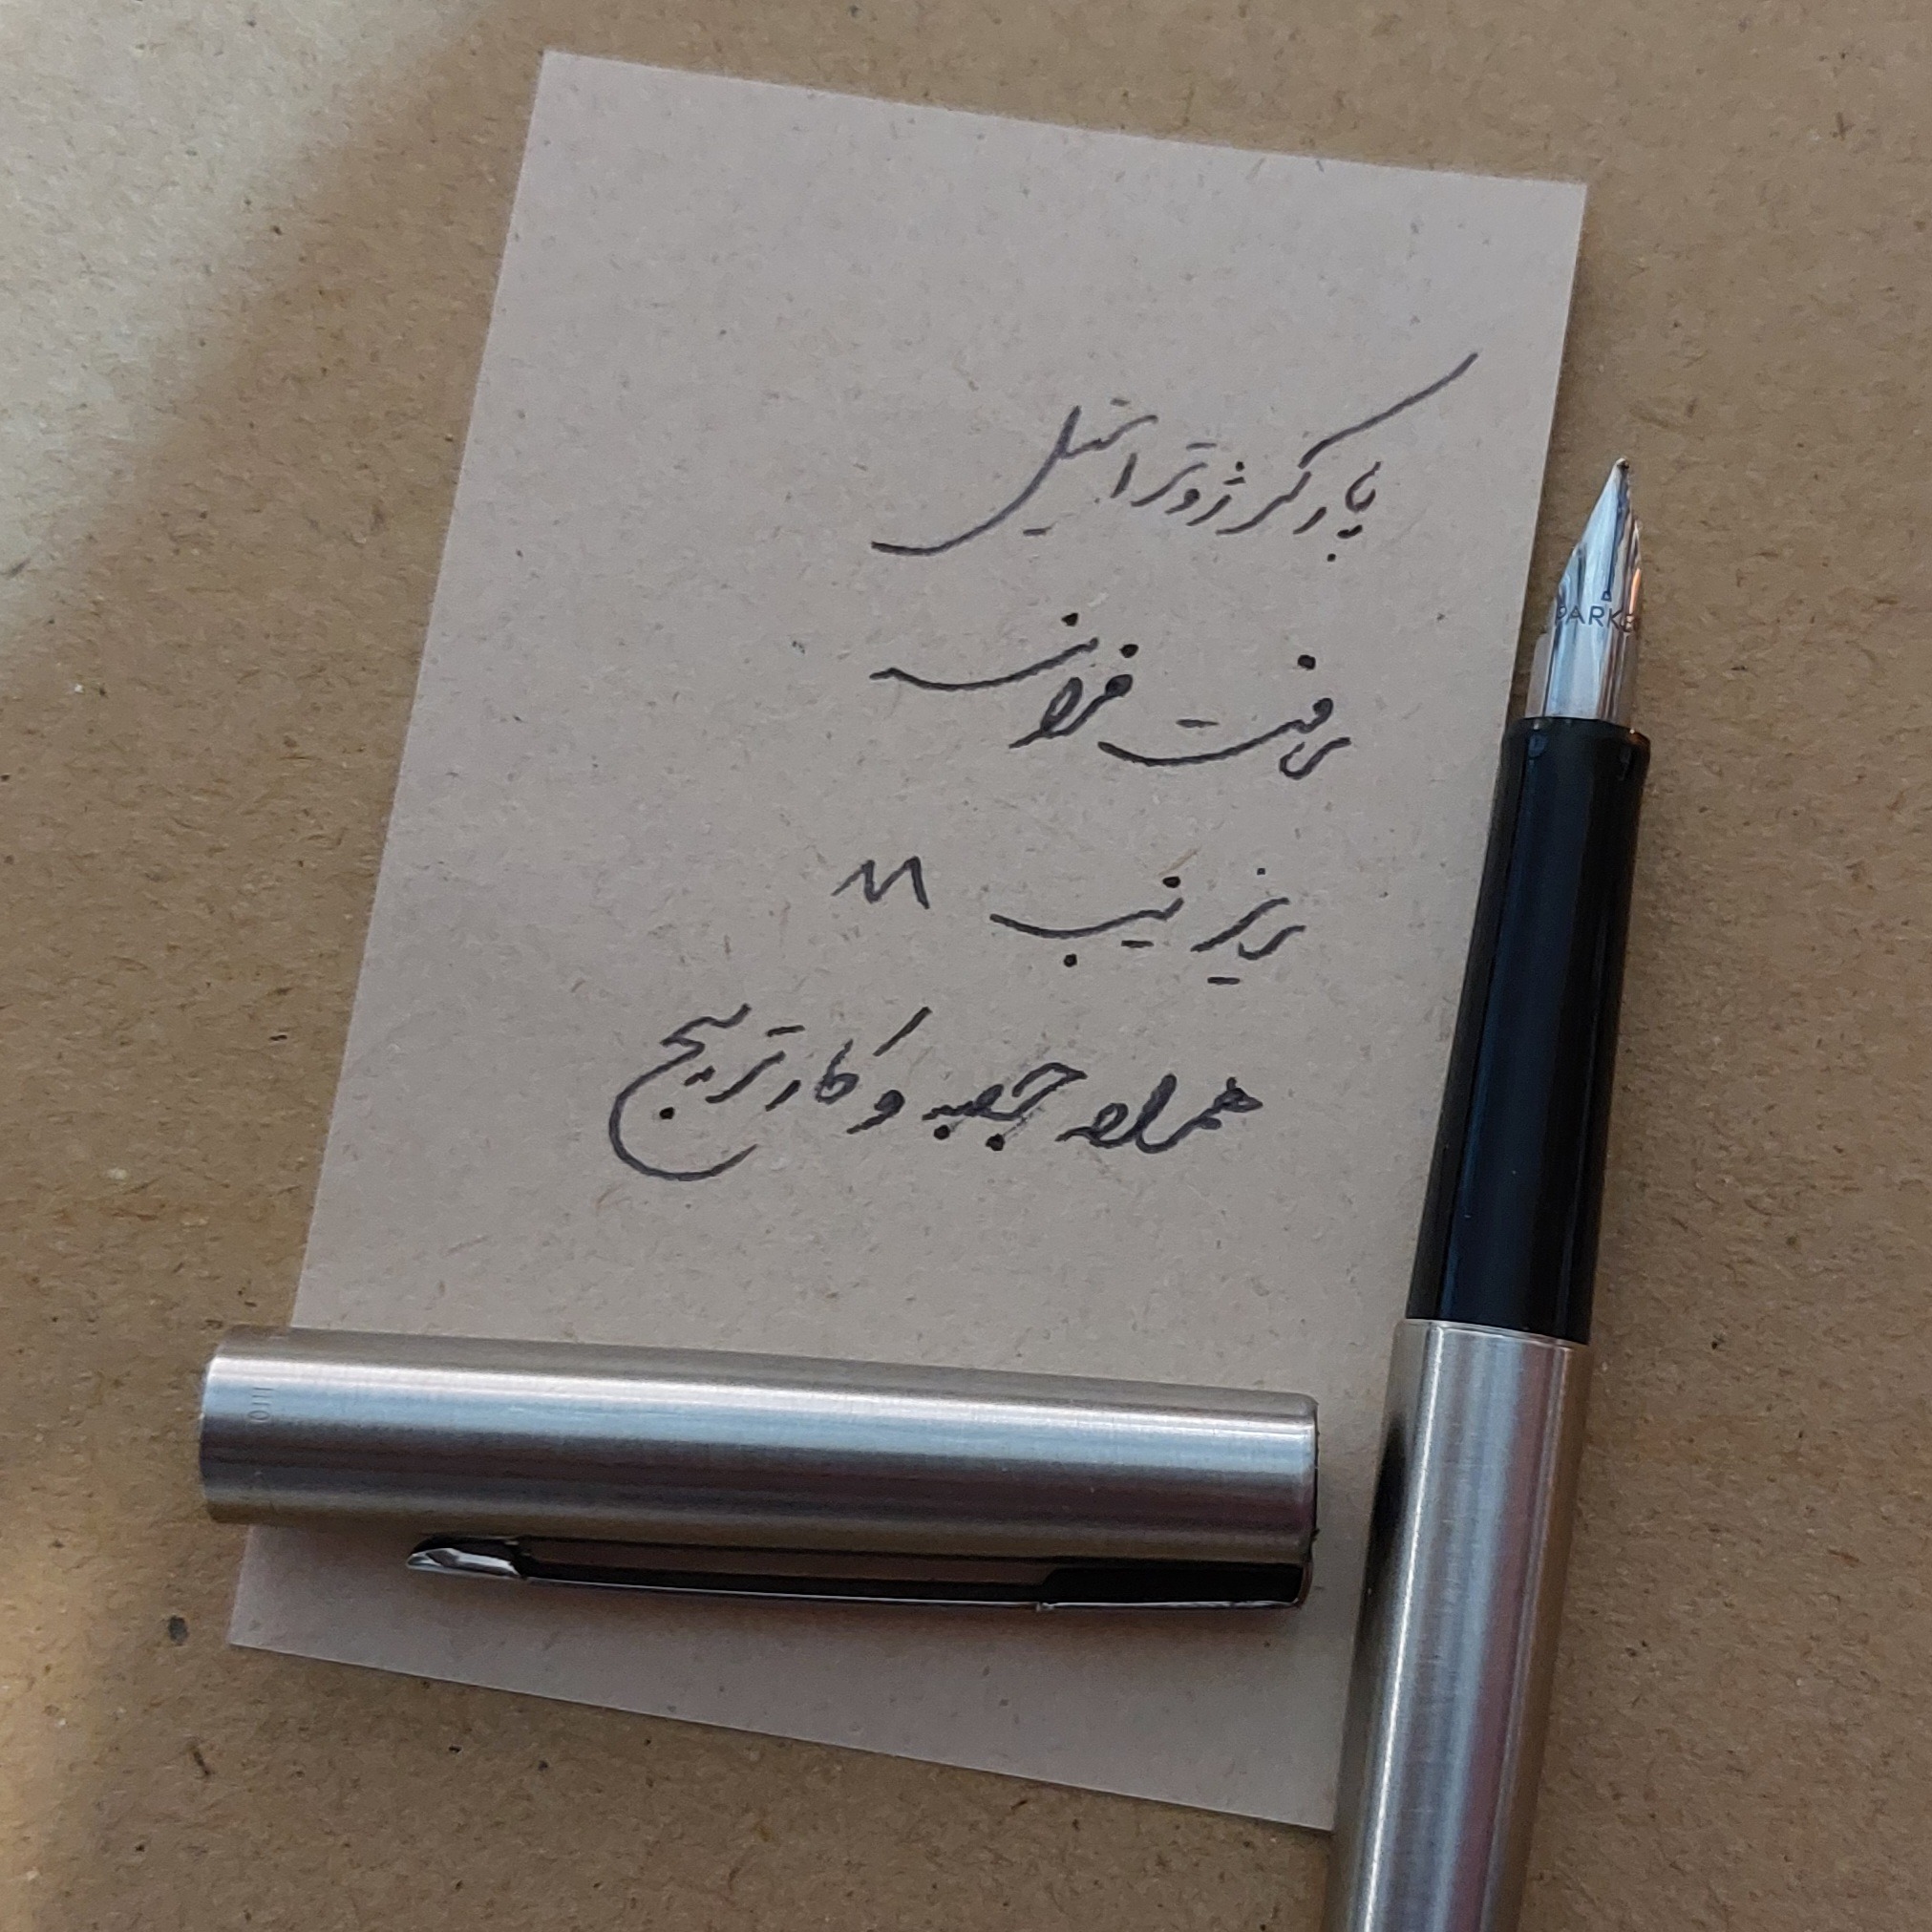 پارکر ژوتر استیل
ساخت فرانسه
سایز نیب M
همراه جعبه و کارتریج
PARKE